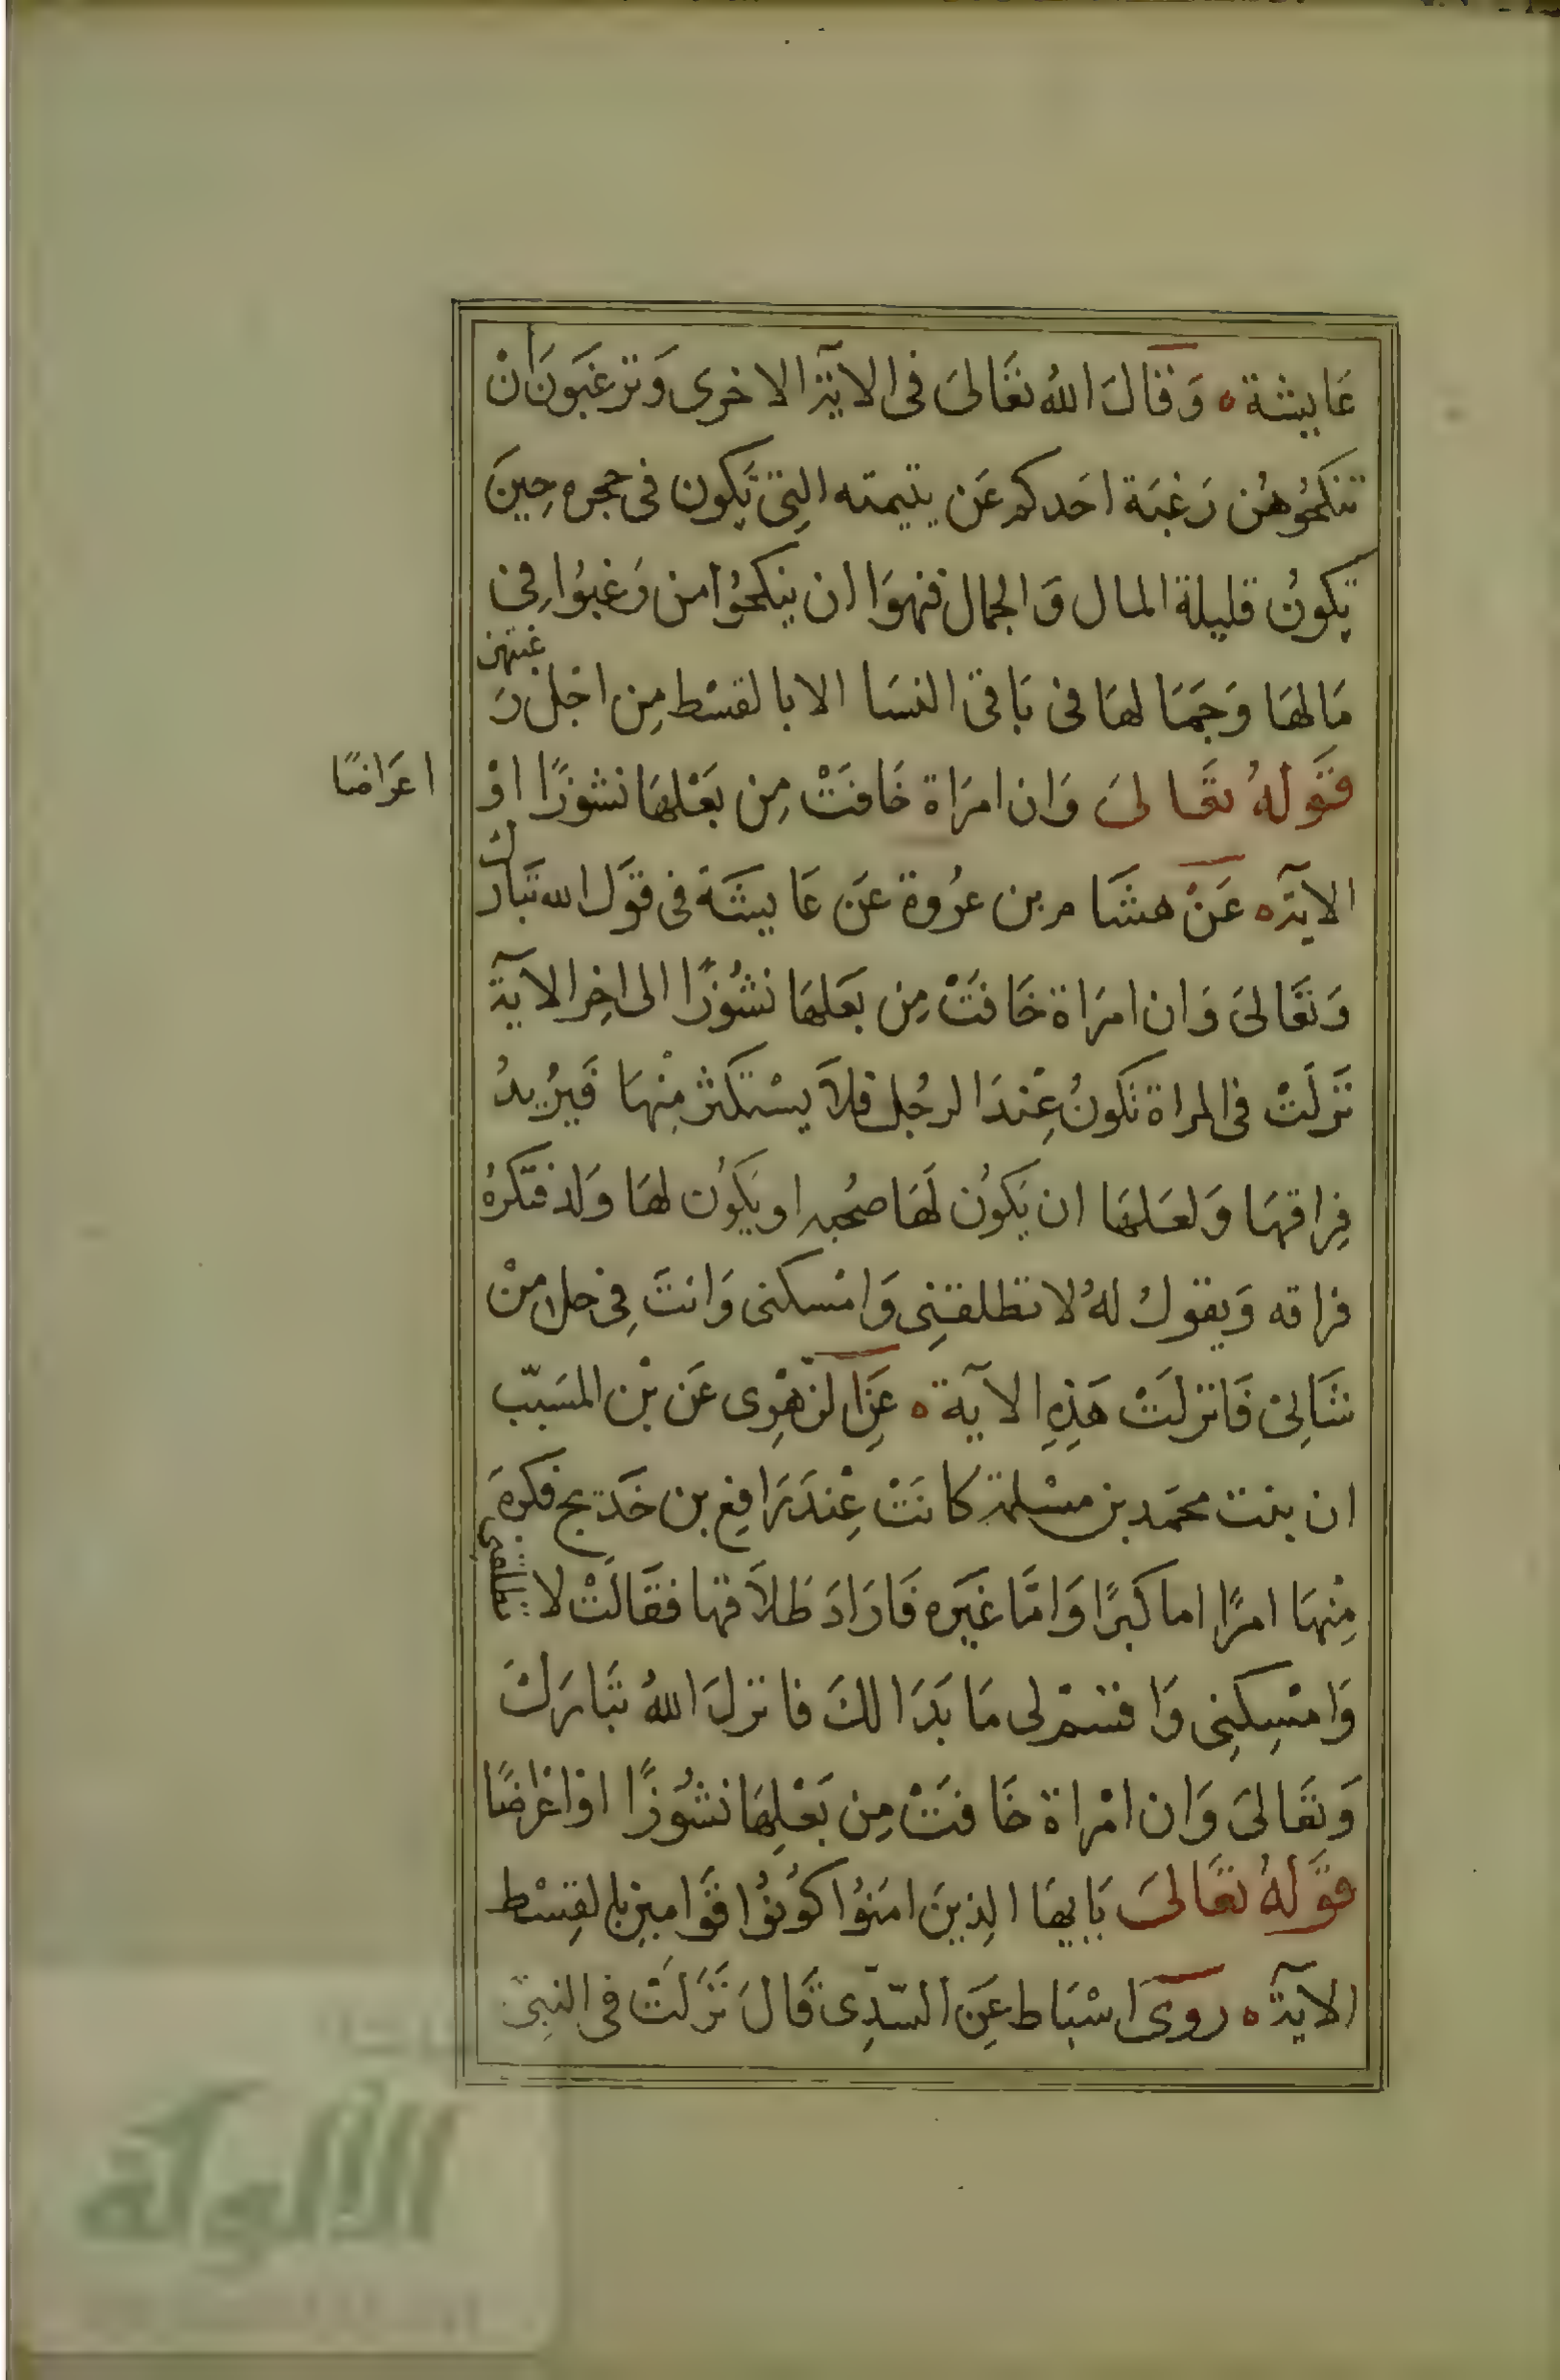 عَايشة ه وَقَالَ اللهُ تعَالىَ فى الآيةِ الاخرى وَترغبَونَ انْ
تنكحُوهُن رَغبَة احَدكم عَن يتيمته التِى تَكون فى حجره حِينَ
تكونُ قليلة المال وَالجمال فنهوَا ان ينكحُوا من رَغبوُا فِى
مَالهَا وَجَمَا لهَا فى بَاقى النسَا الا بالقسْط مِن اجْل رَغبتهن
قَولهُ تعَالىَ وَان امرَاة خَافتْ مِن بعَلهَا نشوزًا اوْ اعرَاضًا
الآية ه عَنْ هشَام بن عرُوة عَن عَايشَة فى قوَل الله تبَارك
وَتعَالىَ وَان امرَاة خَافتْ مِن بعَلهَا نشُوزًا الى اخِر الآية
نَزلَتْ فى المراة تكونُ عِنْدَ الرجُل فلاَ يسْتكثر مِنْهَا فَيرُيدُ
فِراقهَا وَلعَلهَا ان يَكوُن لَهَا صُحبه او يَكوُن لهَا وَلد فتكرهُ
فراقه وَيقول لهُ لا تطلقنِى وَامْسكنى وَانتَ فِى حل مِنْ
شَانِىْ فَانزلَتْ هَذِهِ الآية ه عَنِ الزهْرِى عَن بْن المسَيّب
ان بنت محمَد بن مسْلمة كانَتْ عِنْدَ رَافِع بن خَديج فكرهَ
مِنْهَا امرًا اما كبرًا وَامَّا غيَره فَارَادَ طَلاَقها فقَالَتْ لا تطلقنى
وَامْسِكنِى وَاقسْم لى مَا بَدَا لكَ فانزلَ اللهُ تبَارَكَ
وَتعَالىَ وَان امْراة خَافتْ مِن بَعْلِهَا نشُوزًا اوْ اعْراضًا
قَولهُ تعَالىَ يَايهَا الذِينَ امَنوُا كوُنوُا قَوامِين بالقِسْط
الآية ه روَى اسْبَاط عَنِ السّدِى قَالَ نَزَلَتْ فى النبِىّ
الألوكة